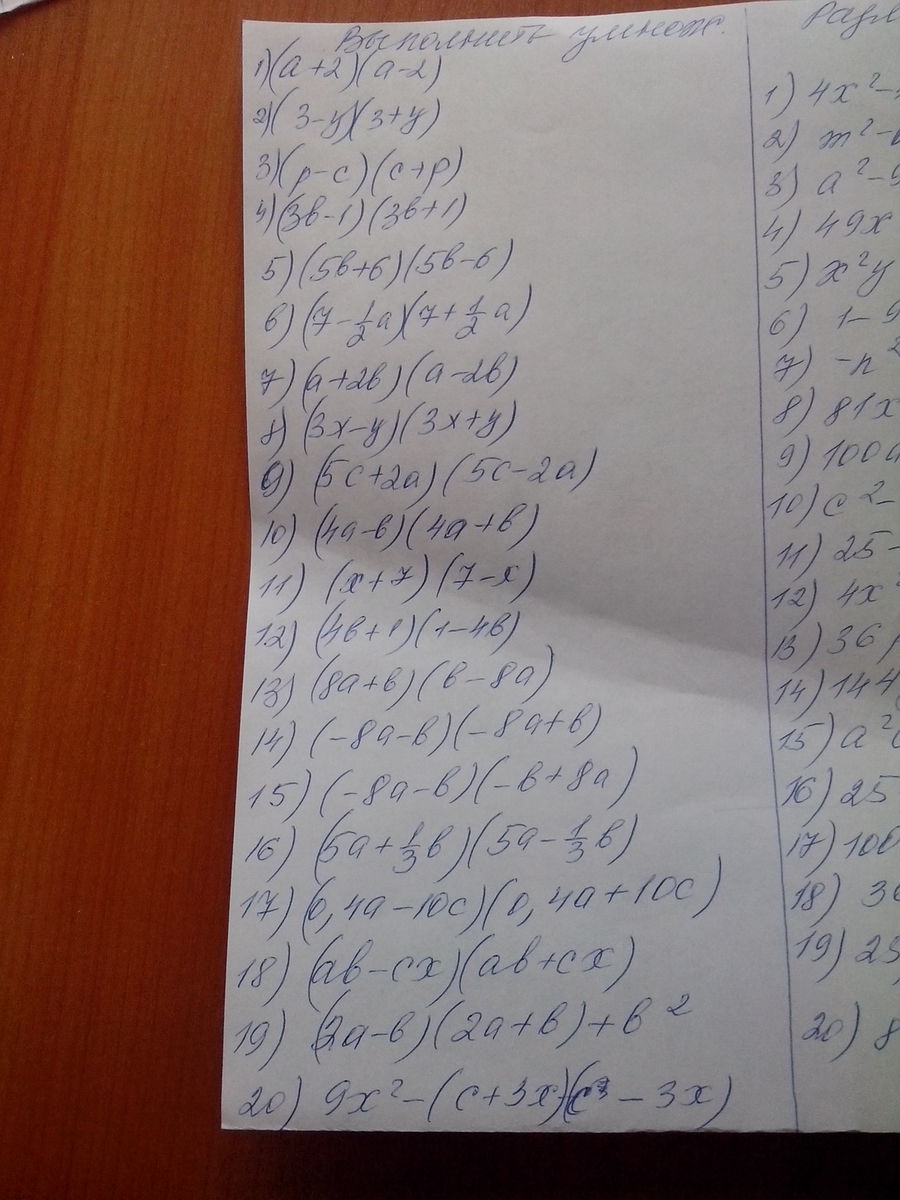 Выполнить умнож.
1) (a+2)(a-2)
2) (3-y)(3+y)
3) (p-c)(c+p)
4) (3b-1)(3b+1)
5) (5b+6)(5b-6)
6) (7-1/2a)(7+1/2a)
7) (a+2b)(a-2b)
8) (3x-y)(3x+y)
9) (5c+2a)(5c-2a)
10) (4a-b)(4a+b)
11) (x+7)(7-x)
12) (4b+1)(1-4b)
13) (8a+b)(b-8a)
14) (-8a-b)(-8a+b)
15) (-8a-b)(-b+8a)
16) (5a+1/3b)(5a-1/3b)
17) (0,4a-10c)(0,4a+10c)
18) (ab-cx)(ab+cx)
19) (2a-b)(2a+b)+b²
20) 9x²-(c+3x)(c-3x)
Разл
1) 4x²-
2) m²-
3) a²-9
4) 49x
5) x²y
6) 1-9
7) -n²
8) 81x
9) 100a
10) c²-
11) 25-
12) 4x²
13) 36p
14) 144
15) a²
16) 25
17) 100
18) 36
19) 25
20) 8